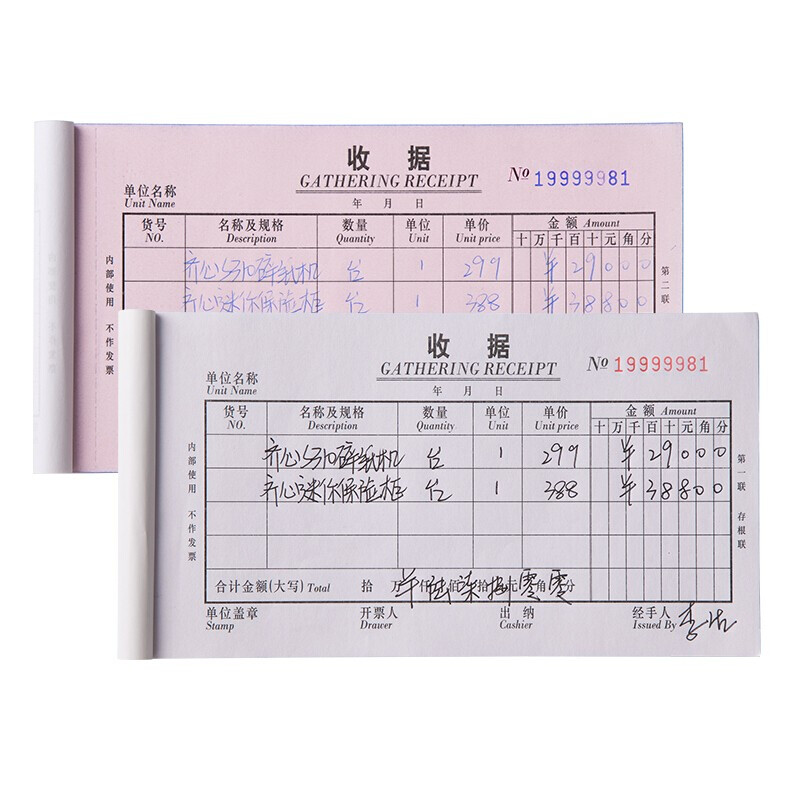 收 据
GATHERING RECEIPT
№ 19999981
单位名称
Unit Name
年 月 日
货号 名称及规格 数量 单位 单价 金 额 Amount
NO. Description Quantity Unit Unit price 十 万 千 百 十 元 角 分
齐心S310碎纸机 台 1 299 ¥29000
齐心迷你保险柜 台 1 388 ¥38800
内部使用 不作发票
第二联
收 据
GATHERING RECEIPT
№ 19999981
单位名称
Unit Name
年 月 日
货号 名称及规格 数量 单位 单价 金 额 Amount
NO. Description Quantity Unit Unit price 十 万 千 百 十 元 角 分
齐心S310碎纸机 台 1 299 ¥29000
齐心迷你保险柜 台 1 388 ¥38800
内部使用 不作发票
第一联 存根联
合计金额(大写) Total 拾 万 ¥ 仟 陆 佰 柒 拾 捌 元 零 角 零 分
单位盖章 开票人 出 纳 经手人
Stamp Drawer Cashier Issued By